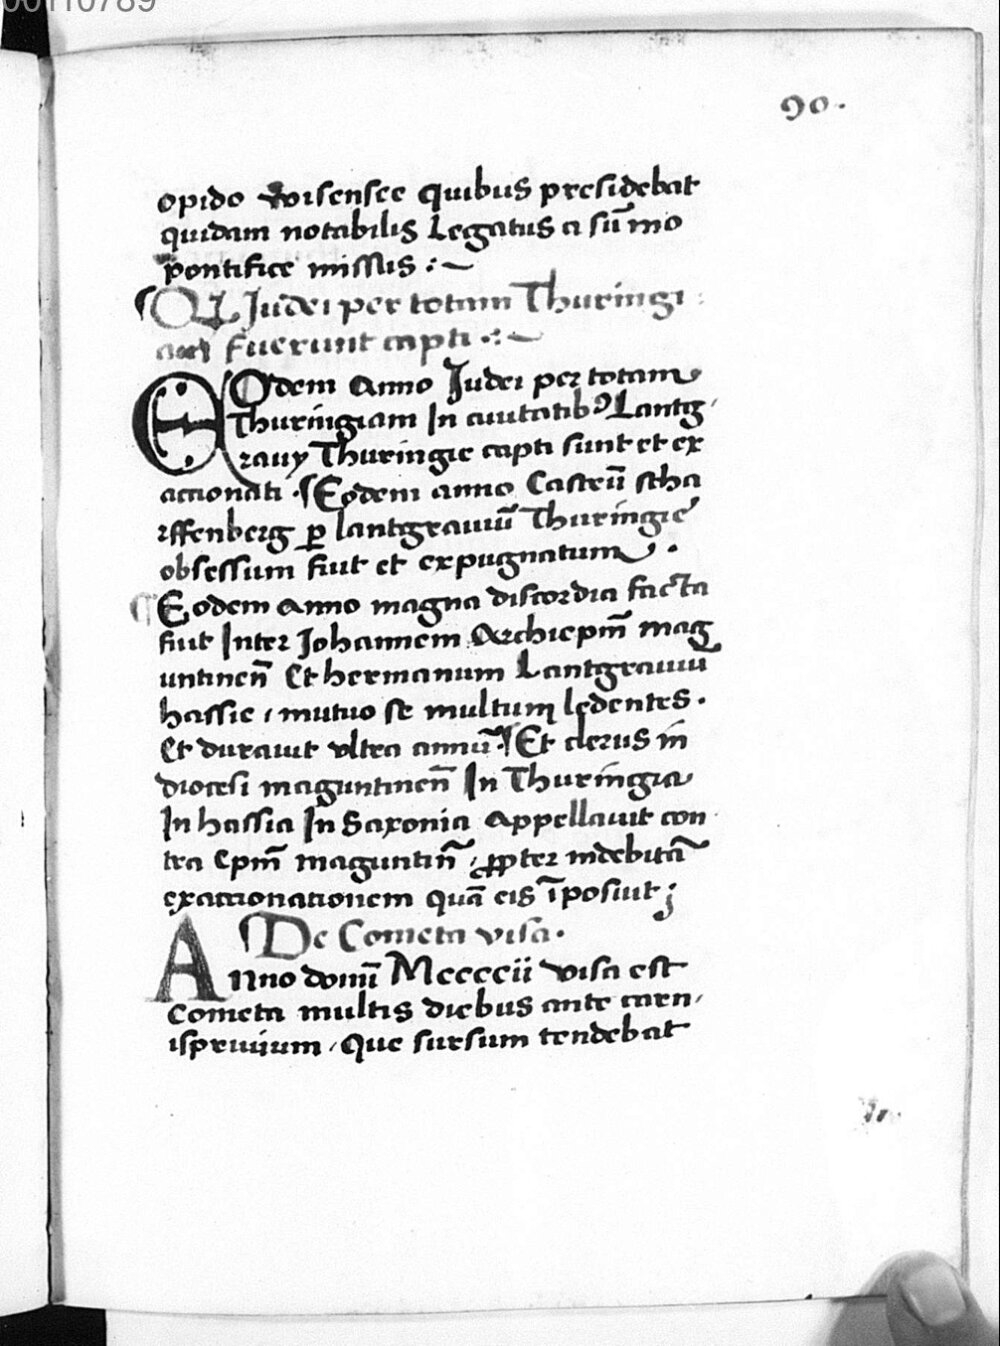 00110789
90.
opido Wisensee quibus presidebat
quidam notabilis Legatus a sūmo
pontifice missus :~
¶ Q Judei per totam Thuringi
fuerunt capti .:~
EOdem Anno Judei per totam
Thuringiam In ciuitatibꝰ Lantg
rauy Thuringie capti sunt et ex
actionati . ¶ Eodem anno Castrū scha
rffenberg ꝑ lantgrauiū Thuringie
obsessum fuit et expugnatum .
¶ Eodem Anno magna discordia facta
fuit Inter Johannem Archiepm̄ mag
untinen̄ Et hermanum Lantgrauiū
hassie , mutuo se multum ledentes .
Et durauit vltra annū . ¶ Et clerus in
diocesi maguntinen̄ In Thuringia
In hassia In Saxonia Appellauit con
tra Epm̄ maguntin̄ , ꝓpter indebitā
exactionationem quā eis īposuit ;
¶ De Cometa visa .
Anno domī Mccccii visa est
Cometa multis diebus ante carn
ispriuium , Que sursum tendebat